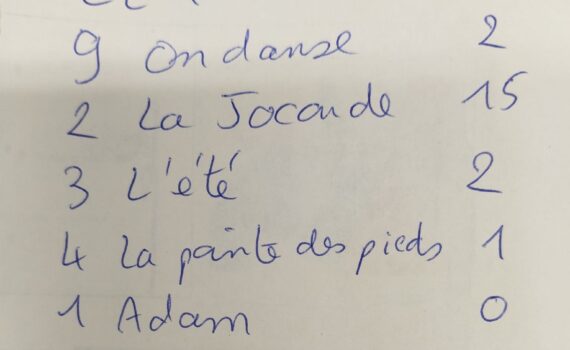 9 On danse 2
2 La Joconde 15
3 L'été 2
4 La pointe des pieds 1
1 Adam 0